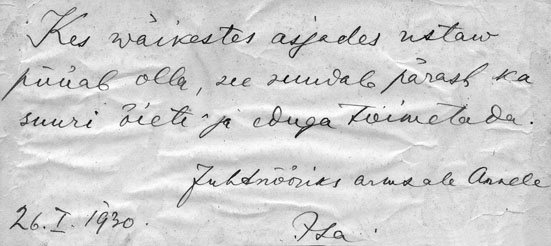 Kes wäikestes asjades ustaw
püüab olla, see suudab pärast ka
suuri õieti ja eduga toimetada.
Juhtnööriks armsale Annele
26.I.1930. Isa.